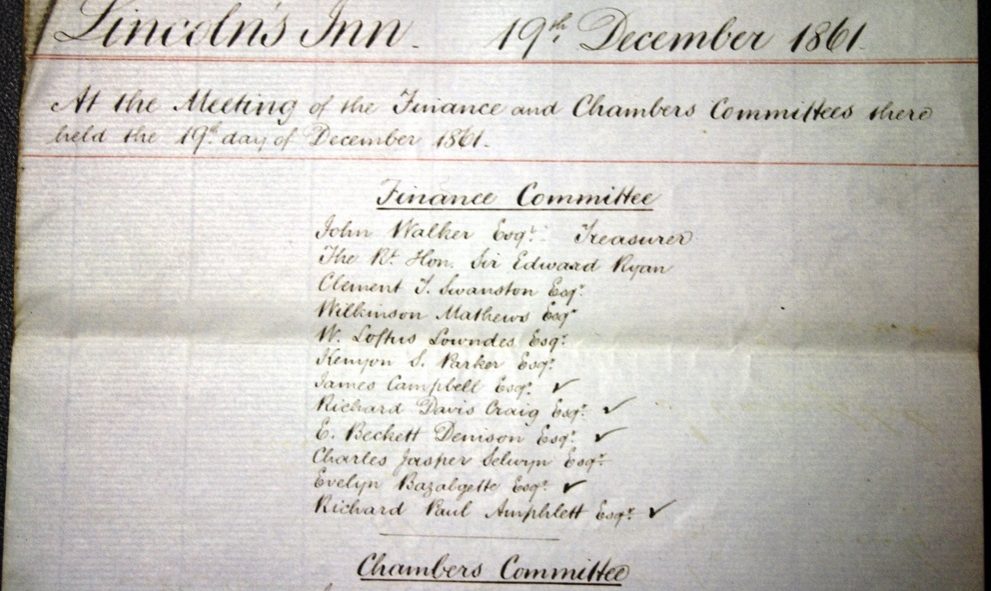 Lincoln's Inn. 19th December 1861.
At the Meeting of the Finance and Chambers Committees there
held the 19th day of December 1861.
Finance Committee
John Walker Esqr. Treasurer
The Rt. Hon. Sir Edward Ryan
Clement T. Swanston Esqr.
Wilkinson Mathews Esqr
W. Loftus Lowndes Esqr.
Kenyon S. Parker Esqr.
James Campbell Esqr. ✓
Richard Davis Craig Esqr. ✓
E. Beckett Denison Esqr. ✓
Charles Jasper Selwyn Esqr.
Evelyn Bazalgette Esqr. ✓
Richard Paul Amphlett Esqr. ✓
Chambers Committee